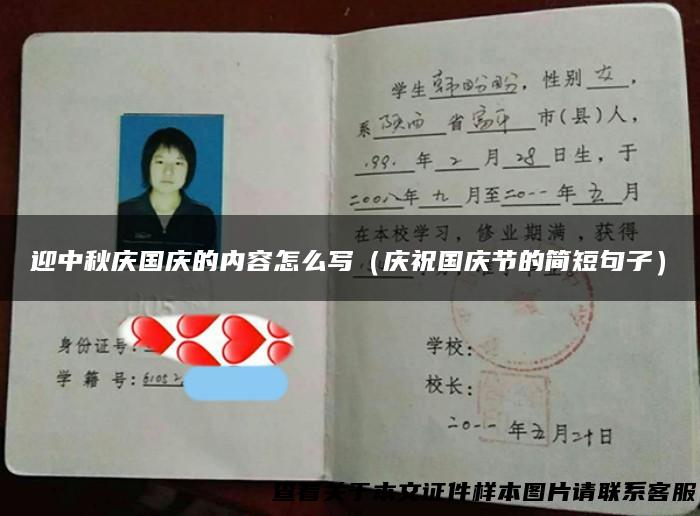 学生韩盼盼，性别女，
系陕西省富平市(县)人，
1991年2月28日生，于
二00八年九月至二0一一年五月
在本校学习，修业期满，获得
迎中秋庆国庆的内容怎么写（庆祝国庆节的简短句子）
身份证号:
学籍号:61052
学校:
校长:
二0一一年五月二十日
查看关于本文证件样本图片请联系客服